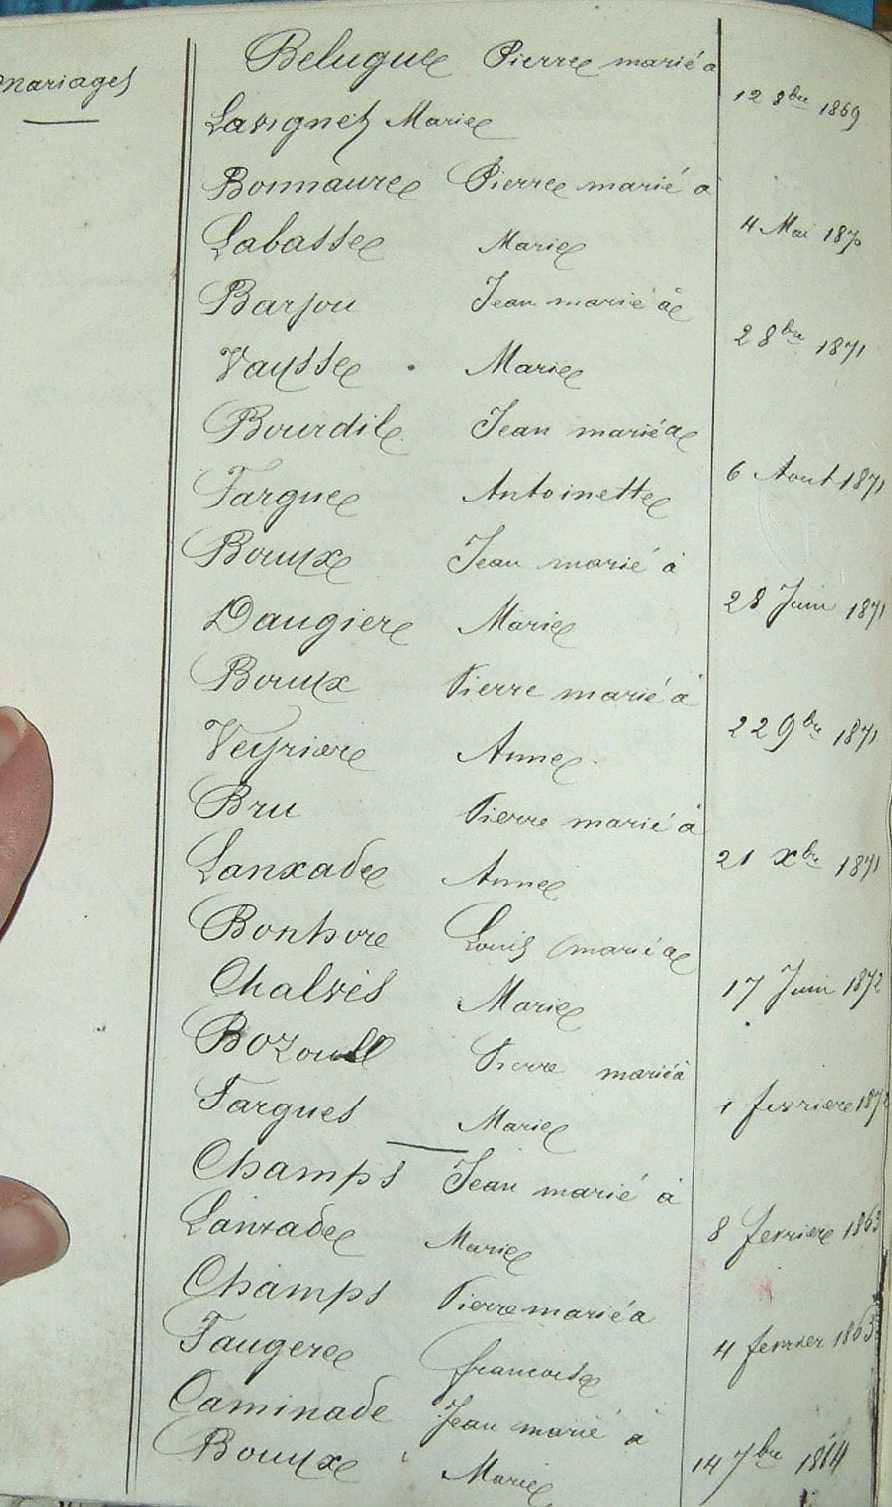 Mariages
Belugue Pierre marié a
12 8bre 1869
Lavignez Marie
Bonnaure Pierre marié a
4 Mai 1870
Labasse Marie
Barjou Jean marié à
2 8bre 1871
Vaysse Marie
Bourdil Jean marié a
6 Aout 1871
Fargue Antoinette
Bouyx Jean marié à
28 Juin 1871
Daugiere Marie
Bouyx Pierre marié à
22 9bre 1871
Veyriere Anne
Bru Pierre marié à
21 Xbre 1871
Lanxade Anne
Bonhore Louis marié a
17 Juin 1872
Chalvès Marie
Bozoull Pierre marié à
1 fevriere
Fargues Marie
Champs Jean marié à
8 fevriere 1863
Lanxade Marie
Champs Pierre marié a
4 fevrier
Faugere francoise
Caminade Jean marié à
14 7bre
Bouyx Marie